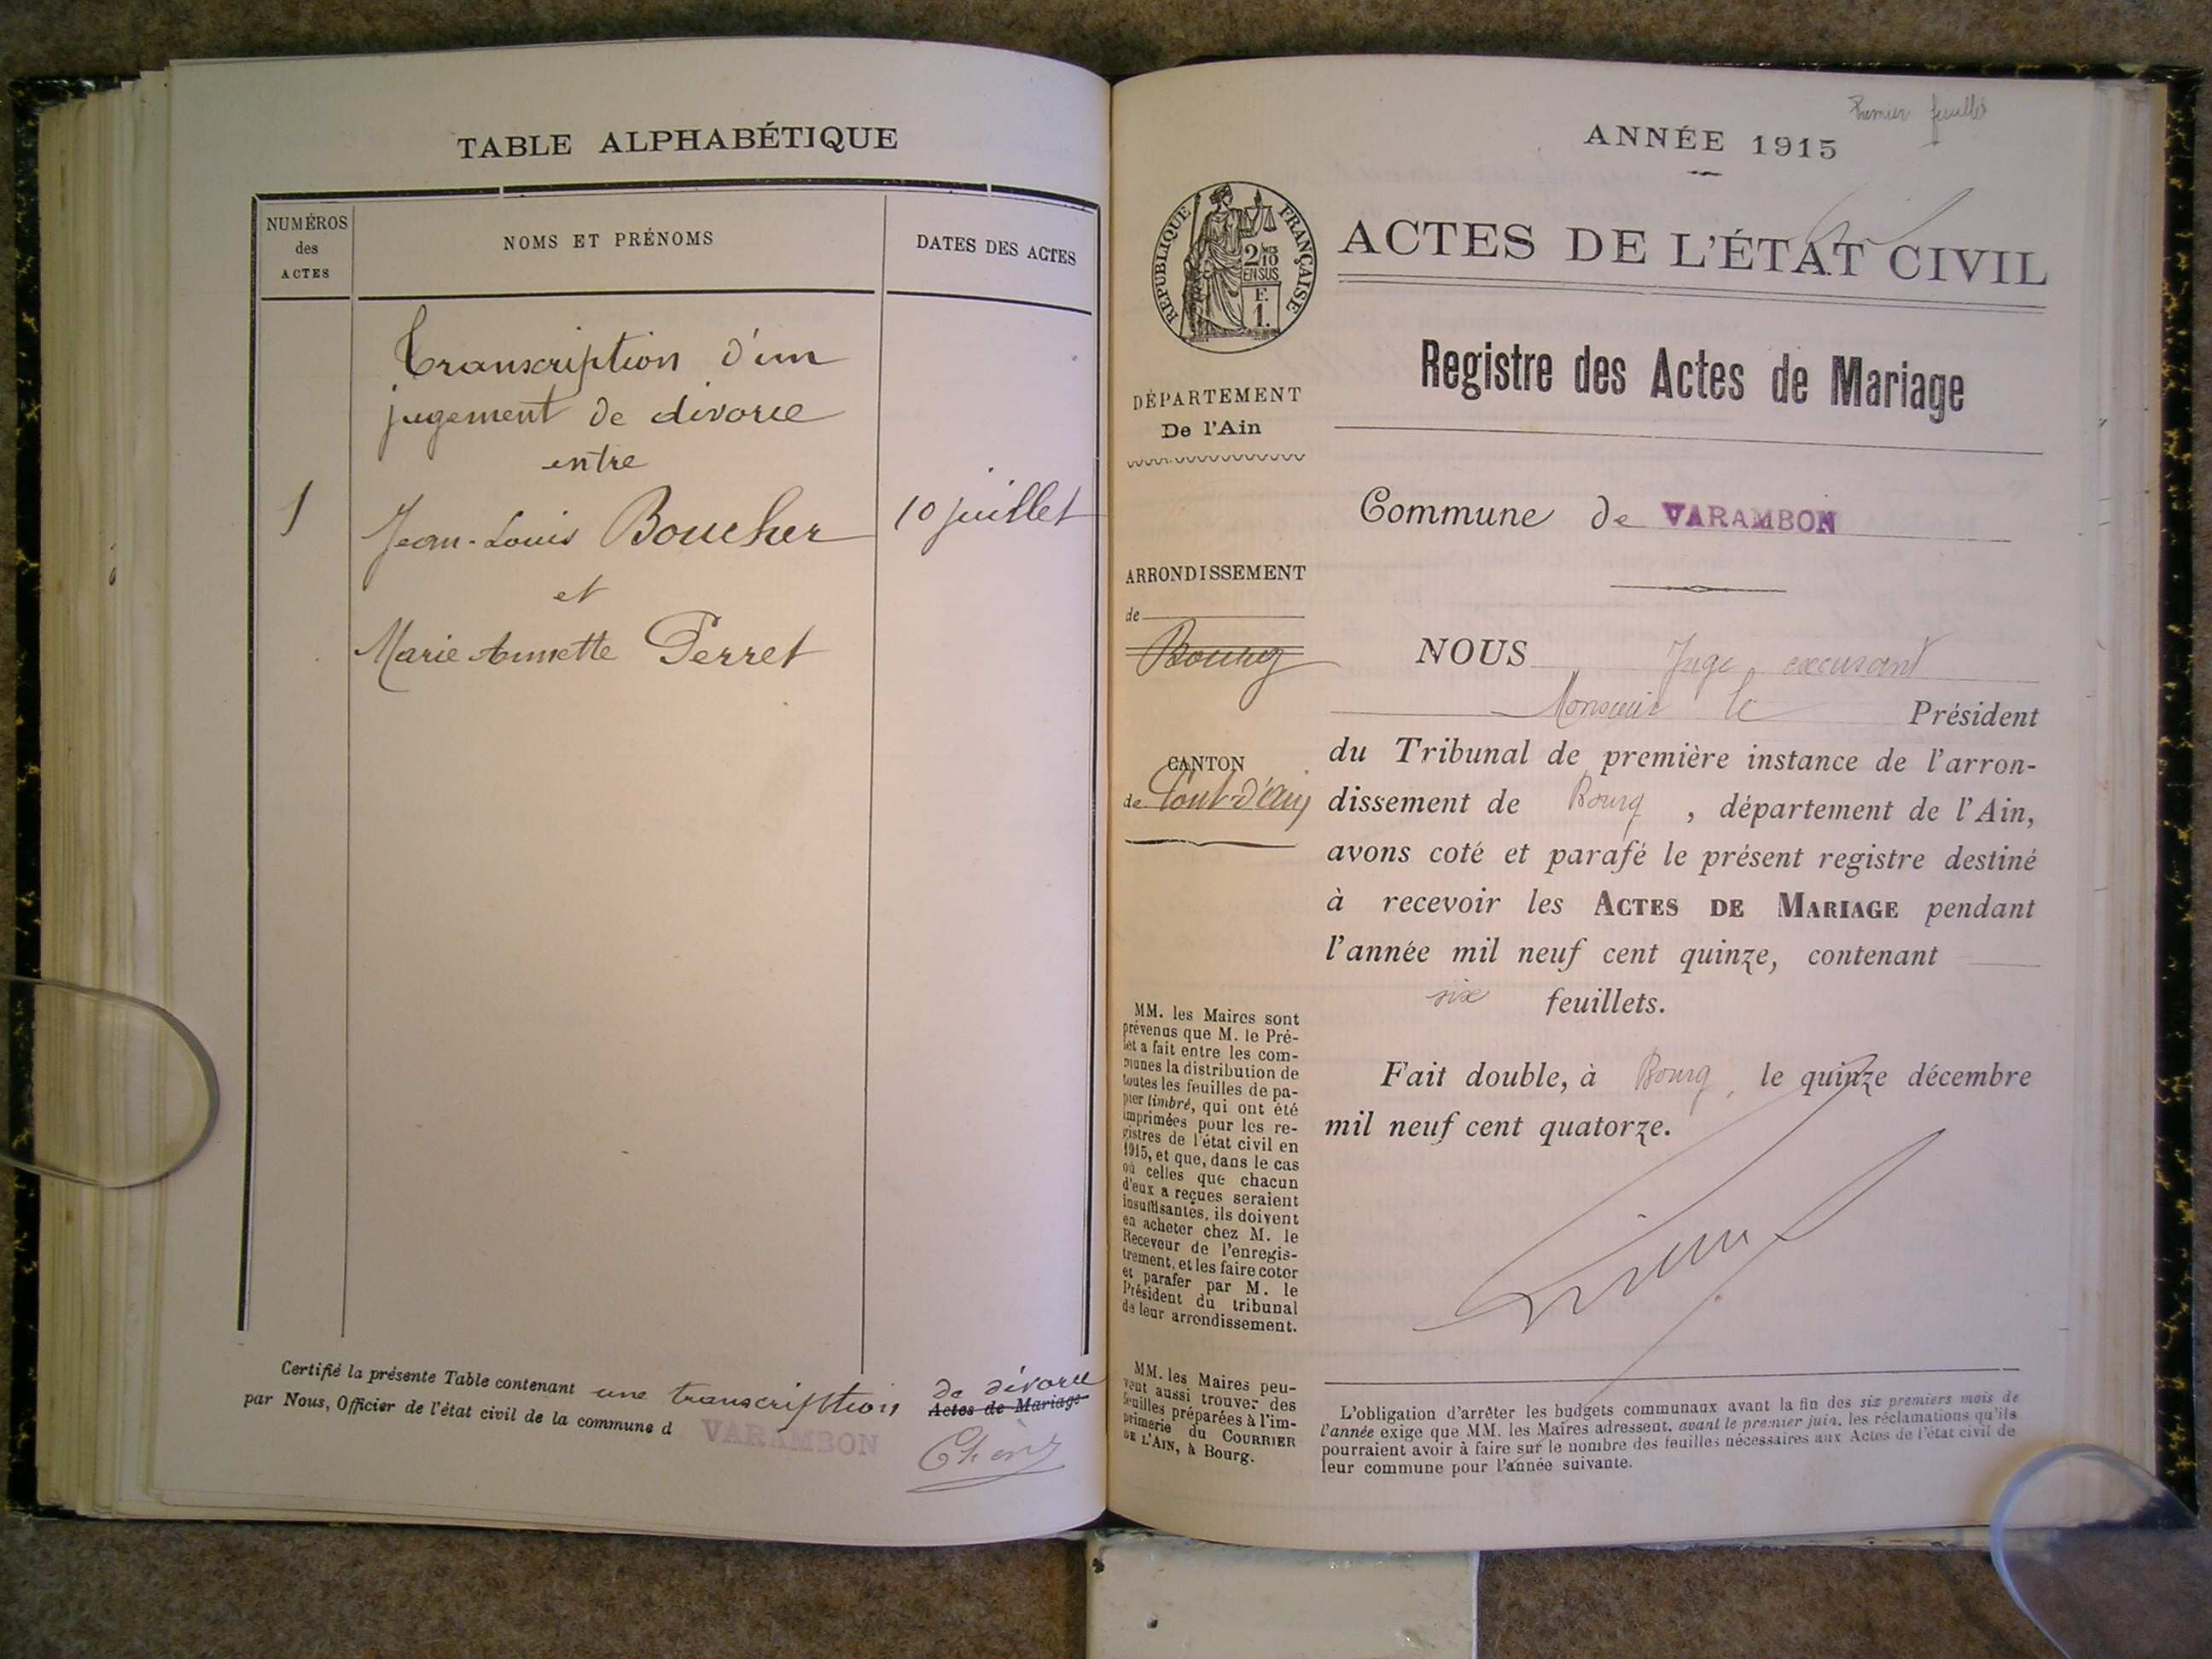 TABLE ALPHABÉTIQUE
NUMÉROS
des
ACTES
NOMS ET PRÉNOMS
DATES DES ACTES
Transcription d'un
jugement de divorce
entre
1 Jean-Louis Boucher 10 juillet
et
Marie Annette Perret
Certifié la présente Table contenant une transcription de divorce
Actes de Mariage
par Nous, Officier de l'état civil de la commune d VARAMBON
Premier feuillet
ANNÉE 1915
RÉPUBLIQUE FRANÇAISE
2/10
EN SUS
F.
1.
ACTES DE L'ÉTAT CIVIL
Registre des Actes de Mariage
DÉPARTEMENT
De l'Ain
Commune de VARAMBON
ARRONDISSEMENT
de
Bourg
CANTON
de Pont-d'Ain
NOUS Juge excusant
Monsieur le Président
du Tribunal de première instance de l'arron-
dissement de Bourg, département de l'Ain,
avons coté et parafé le présent registre destiné
à recevoir les ACTES DE MARIAGE pendant
l'année mil neuf cent quinze, contenant
six feuillets.
Fait double, à Bourg, le quinze décembre
mil neuf cent quatorze.
MM. les Maires sont
prévenus que M. le Pré-
fet a fait entre les com-
munes la distribution de
toutes les feuilles de pa-
pier timbré, qui ont été
imprimées pour les re-
gistres de l'état civil en
1915, et que, dans le cas
où celles que chacun
d'eux a reçues seraient
insuffisantes, ils doivent
en acheter chez M. le
Receveur de l'enregis-
trement, et les faire coter
et parafer par M. le
Président du tribunal
de leur arrondissement.
MM. les Maires peu-
vent aussi trouver des
feuilles préparées à l'im-
primerie du COURRIER
DE L'AIN, à Bourg.
L'obligation d'arrêter les budgets communaux avant la fin des six premiers mois de
l'année exige que MM. les Maires adressent, avant le premier juin, les réclamations qu'ils
pourraient avoir à faire sur le nombre des feuilles nécessaires aux Actes de l'état civil de
leur commune pour l'année suivante.